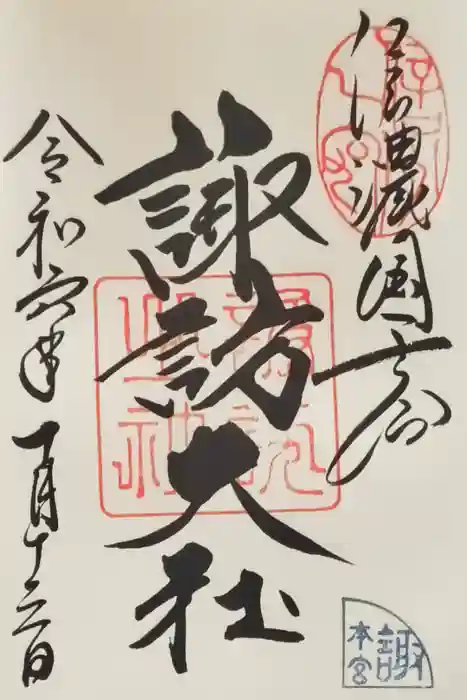 信濃國一宮
諏訪大社
令和六年一月十三日
諏
本宮